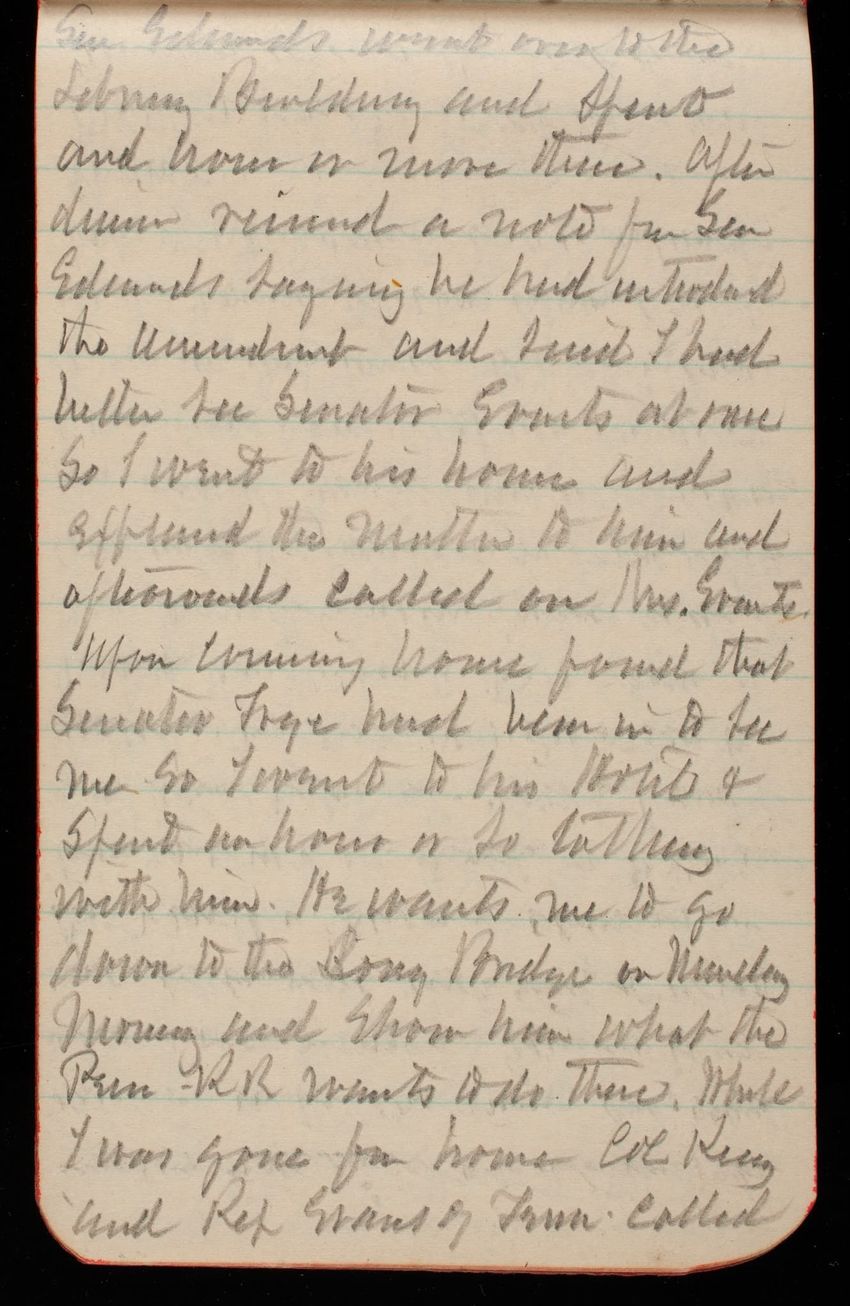 Sen. Edmunds went over to the
Library Building and Spent
and hour or more there. After
dinner received a note from Sen
Edmunds saying he had introduced
the Amendment and said I had
better see Senator Evarts at once
So I went to his home and
Explained the matter to him and
afterwards called on Mrs. Evarts.
Upon coming home found that
Senator Frye had been in to see
me So I went to his Hotel &
Spent an hour or so talking
with him. He wants me to go
down to the Long Bridge on Monday
Morning and Show him what the
Penn RR wants to do there. While
I was gone from home Col King
and Rep Evans of Tenn. called